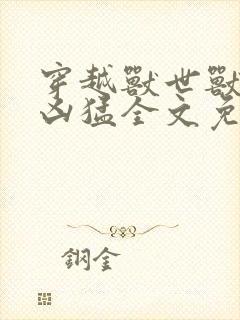 穿越獸世獸
凶猛全文免
鋼金